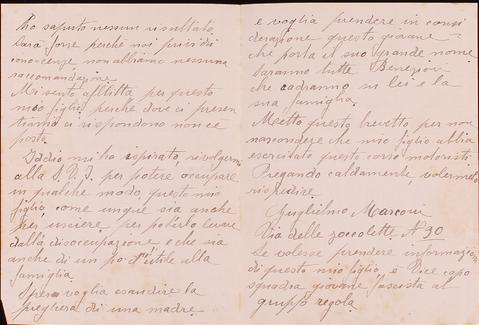 ho saputo nessun risultato
Sarà forse perché noi privi di
conoscenze non abbiamo nessuna
raccomandazione.
Mi sento afflitta per questo
mio figlio perché dove ci presen
tiamo ci rispondono non c'è
posto.
Iddio mi ha ispirato, rivolgermi
alla S. V. I. per potere occupare
in qualche modo, questo mio
figlio, come sia anche
per usciere per poterlo levare
dalla disoccupazione, e che sia
anche di un po' d'utile alla
famiglia
Spero voglia esaudire la
preghiera di una madre
e voglia prendere in consi
derazione questo giovane
che porta il suo grande nome
Saranno tutte Benezioni
che cadranno su lei e la
sua famiglia.
Metto questo brevetto per non
nascondere che mio figlio abbia
esercitato questo corso motoristi.
Pregando caldamente volermelo
rispedire.
Guglielmo Marconi
Via delle zoccolette N° 30
Se volesse prendere informazioni
di questo mio figlio è Vice capo
squadra giovane fascista al
gruppo regola